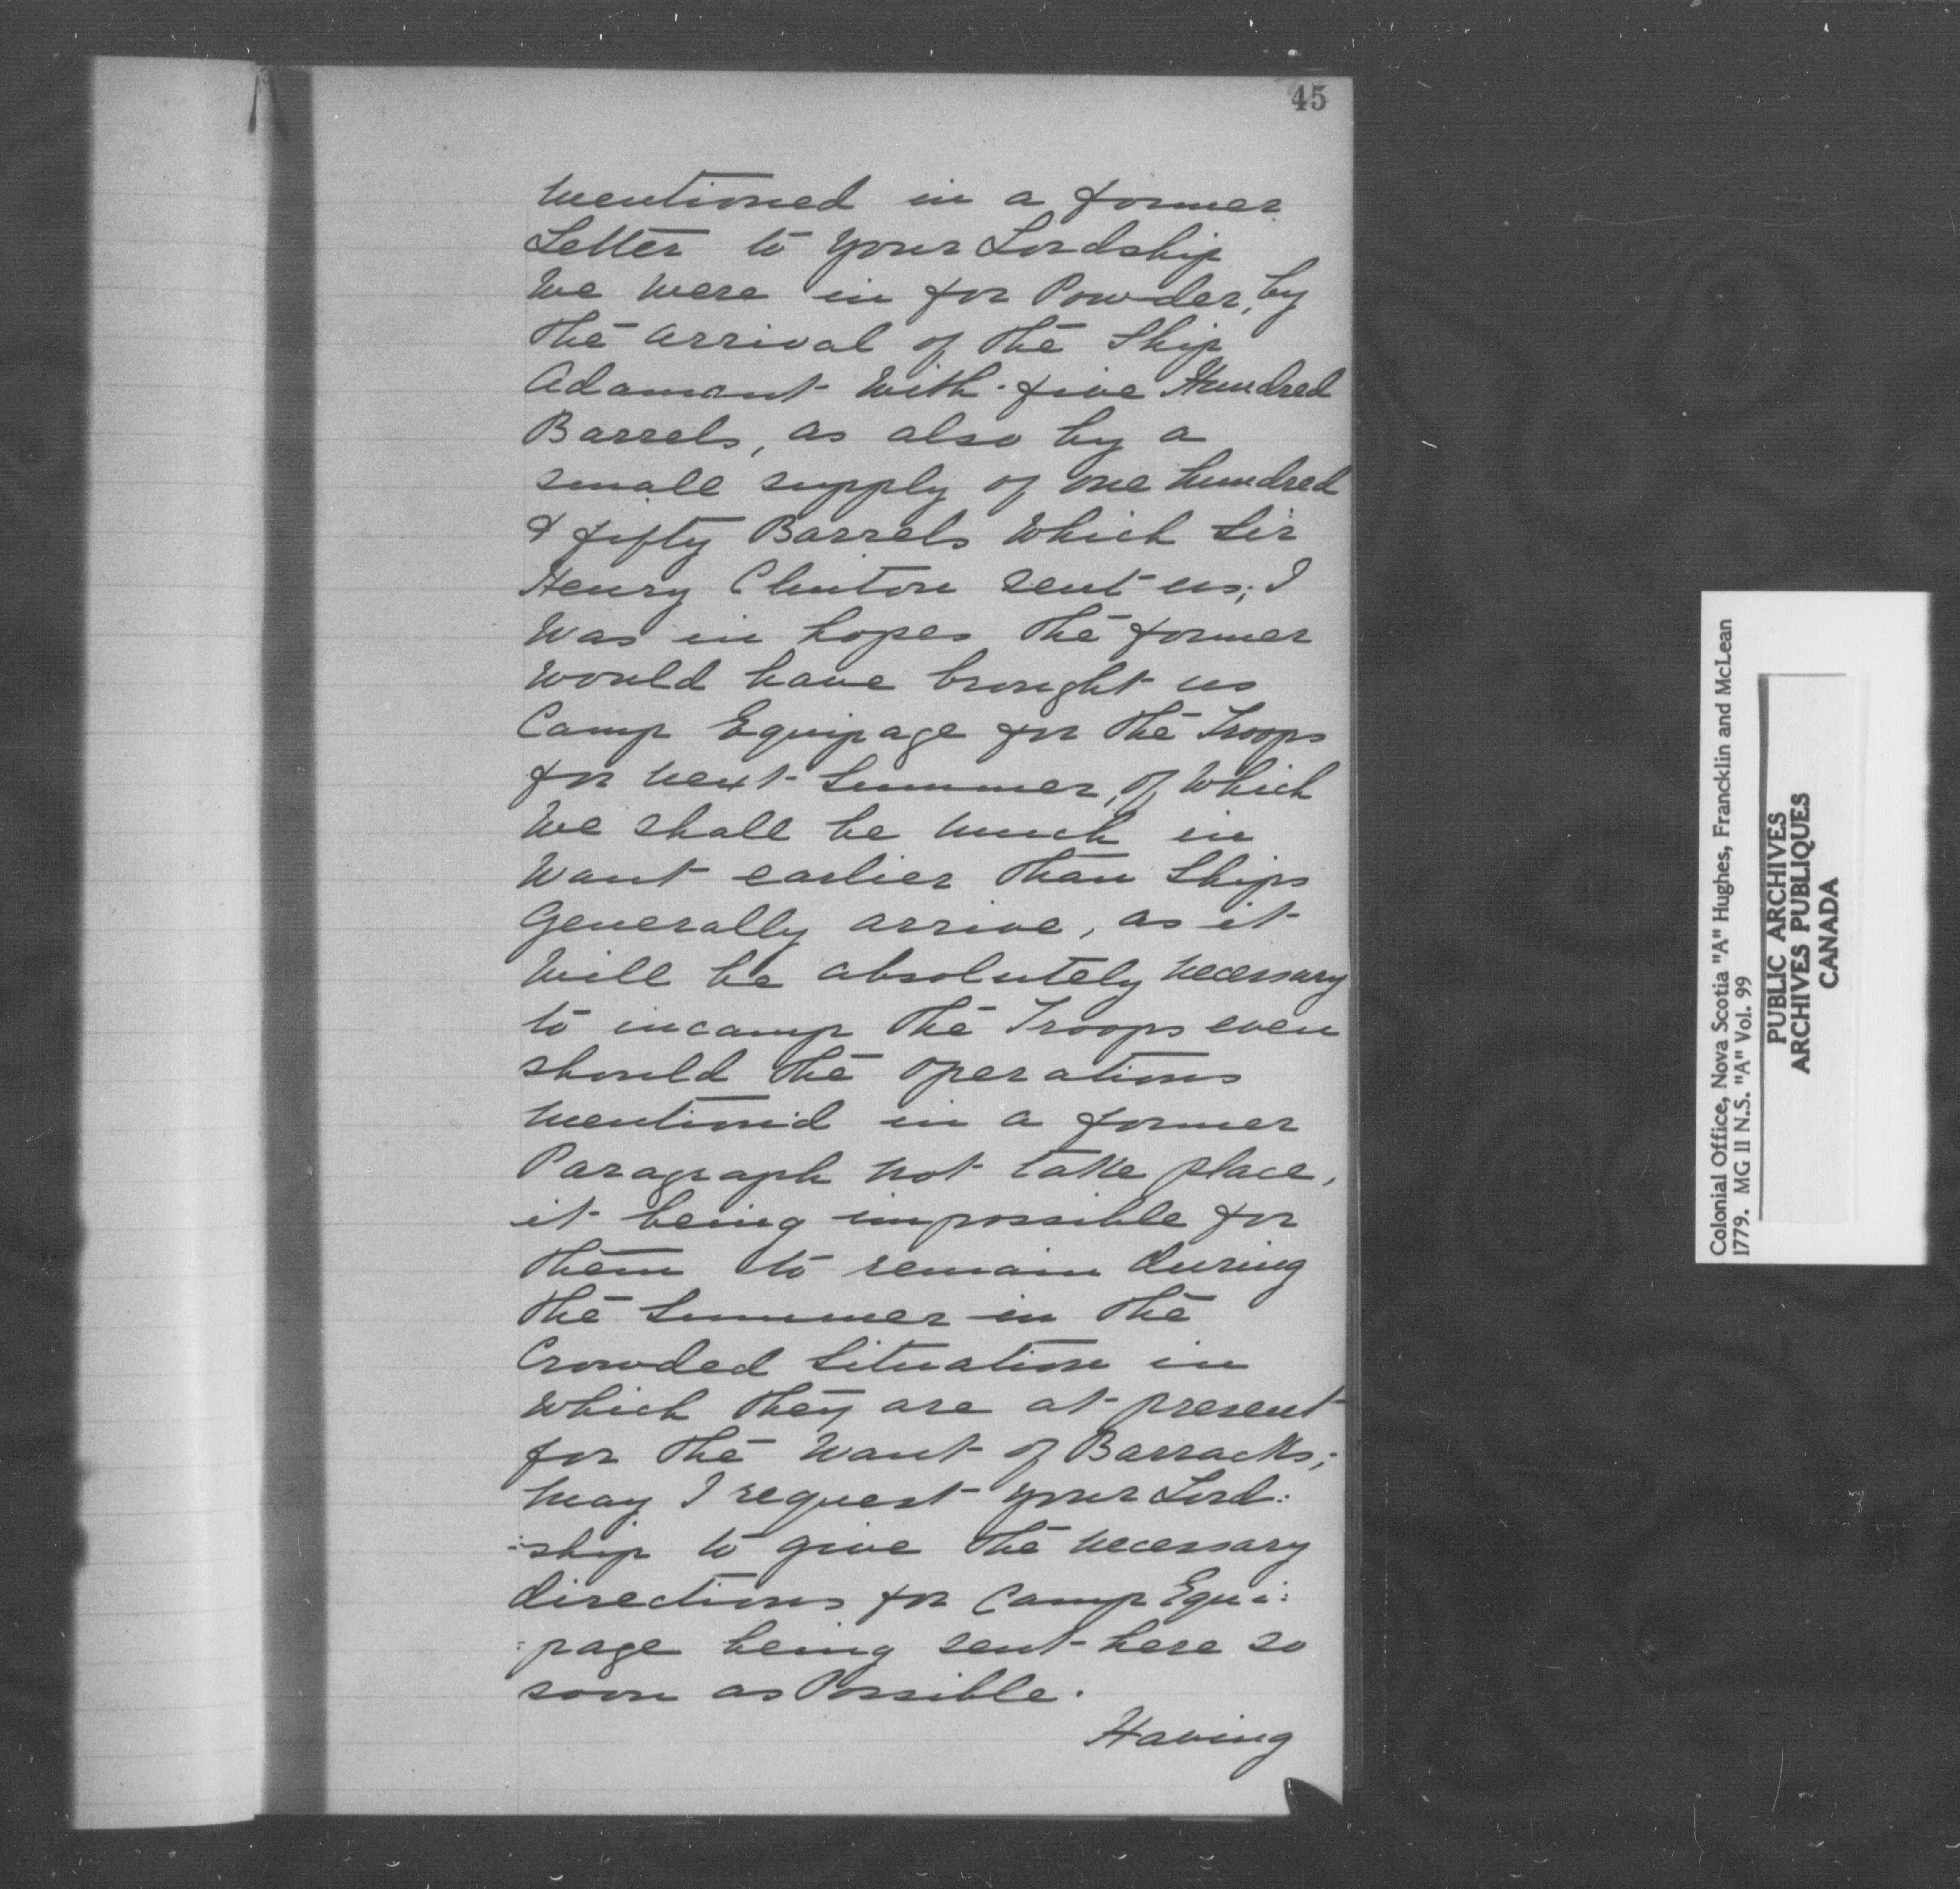 45
mentioned in a former
Letter to your Lordship
We were in for Powder, by
the arrival of the Ship
Adamant with five Hundred
Barrels, as also by a
small supply of one hundred
& fifty Barrels which Sir
Henry Clinton sent us; I
was in hopes the former
would have brought us
Camp Equipage for the Troops
for next Summer, of which
We shall be much in
want earlier than Ships
Generally arrive, as it
will be absolutely necessary
to incamp the Troops even
should the operations
mention'd in a former
Paragraph not take place,
it being impossible for
them to remain during
the Summer in the
Crowded Situation in
which they are at present
for the Want of Barracks;
may I request your Lord:
:ship to give the necessary
directions for Camp Equi:
:page being sent here so
soon as Possible.
Having
Colonial Office, Nova Scotia "A" Hughes, Francklin and McLean
1779. MG II N.S. "A" Vol. 99
PUBLIC ARCHIVES
ARCHIVES PUBLIQUES
CANADA